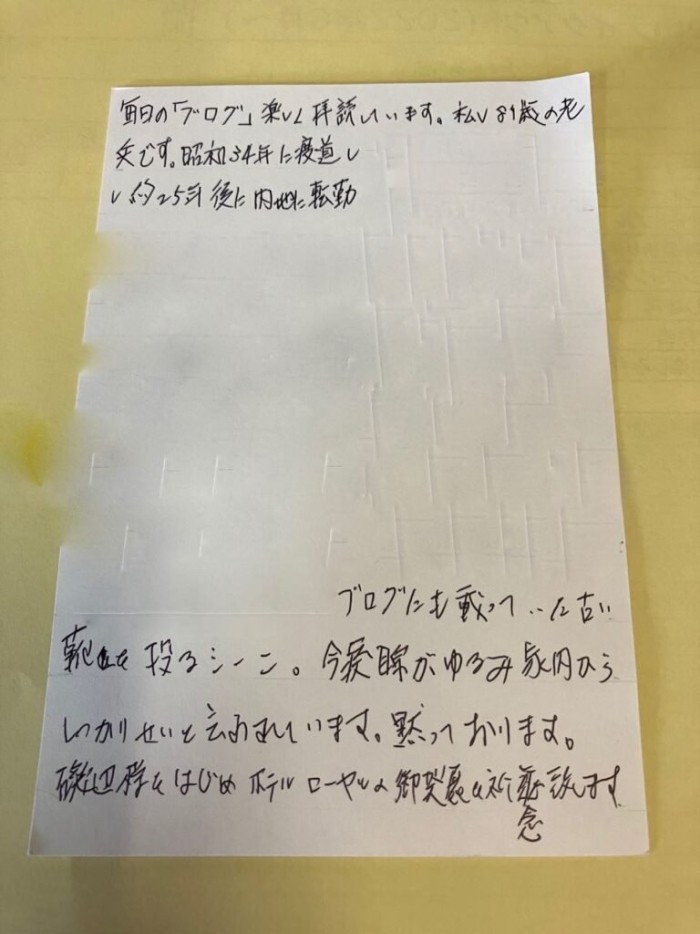 毎日の「ブログ」楽しく拝読しています。私し81歳の老
夫です。昭和34年に渡道し
し約25年後に内地に転勤
ブログにも載っていた古い
靴を投るシーン。今涙腺がゆるみ家内から
しっかりせいと云われています。黙っております。
磯辺様をはじめホテルローヤルの御発展を祈
念
致します